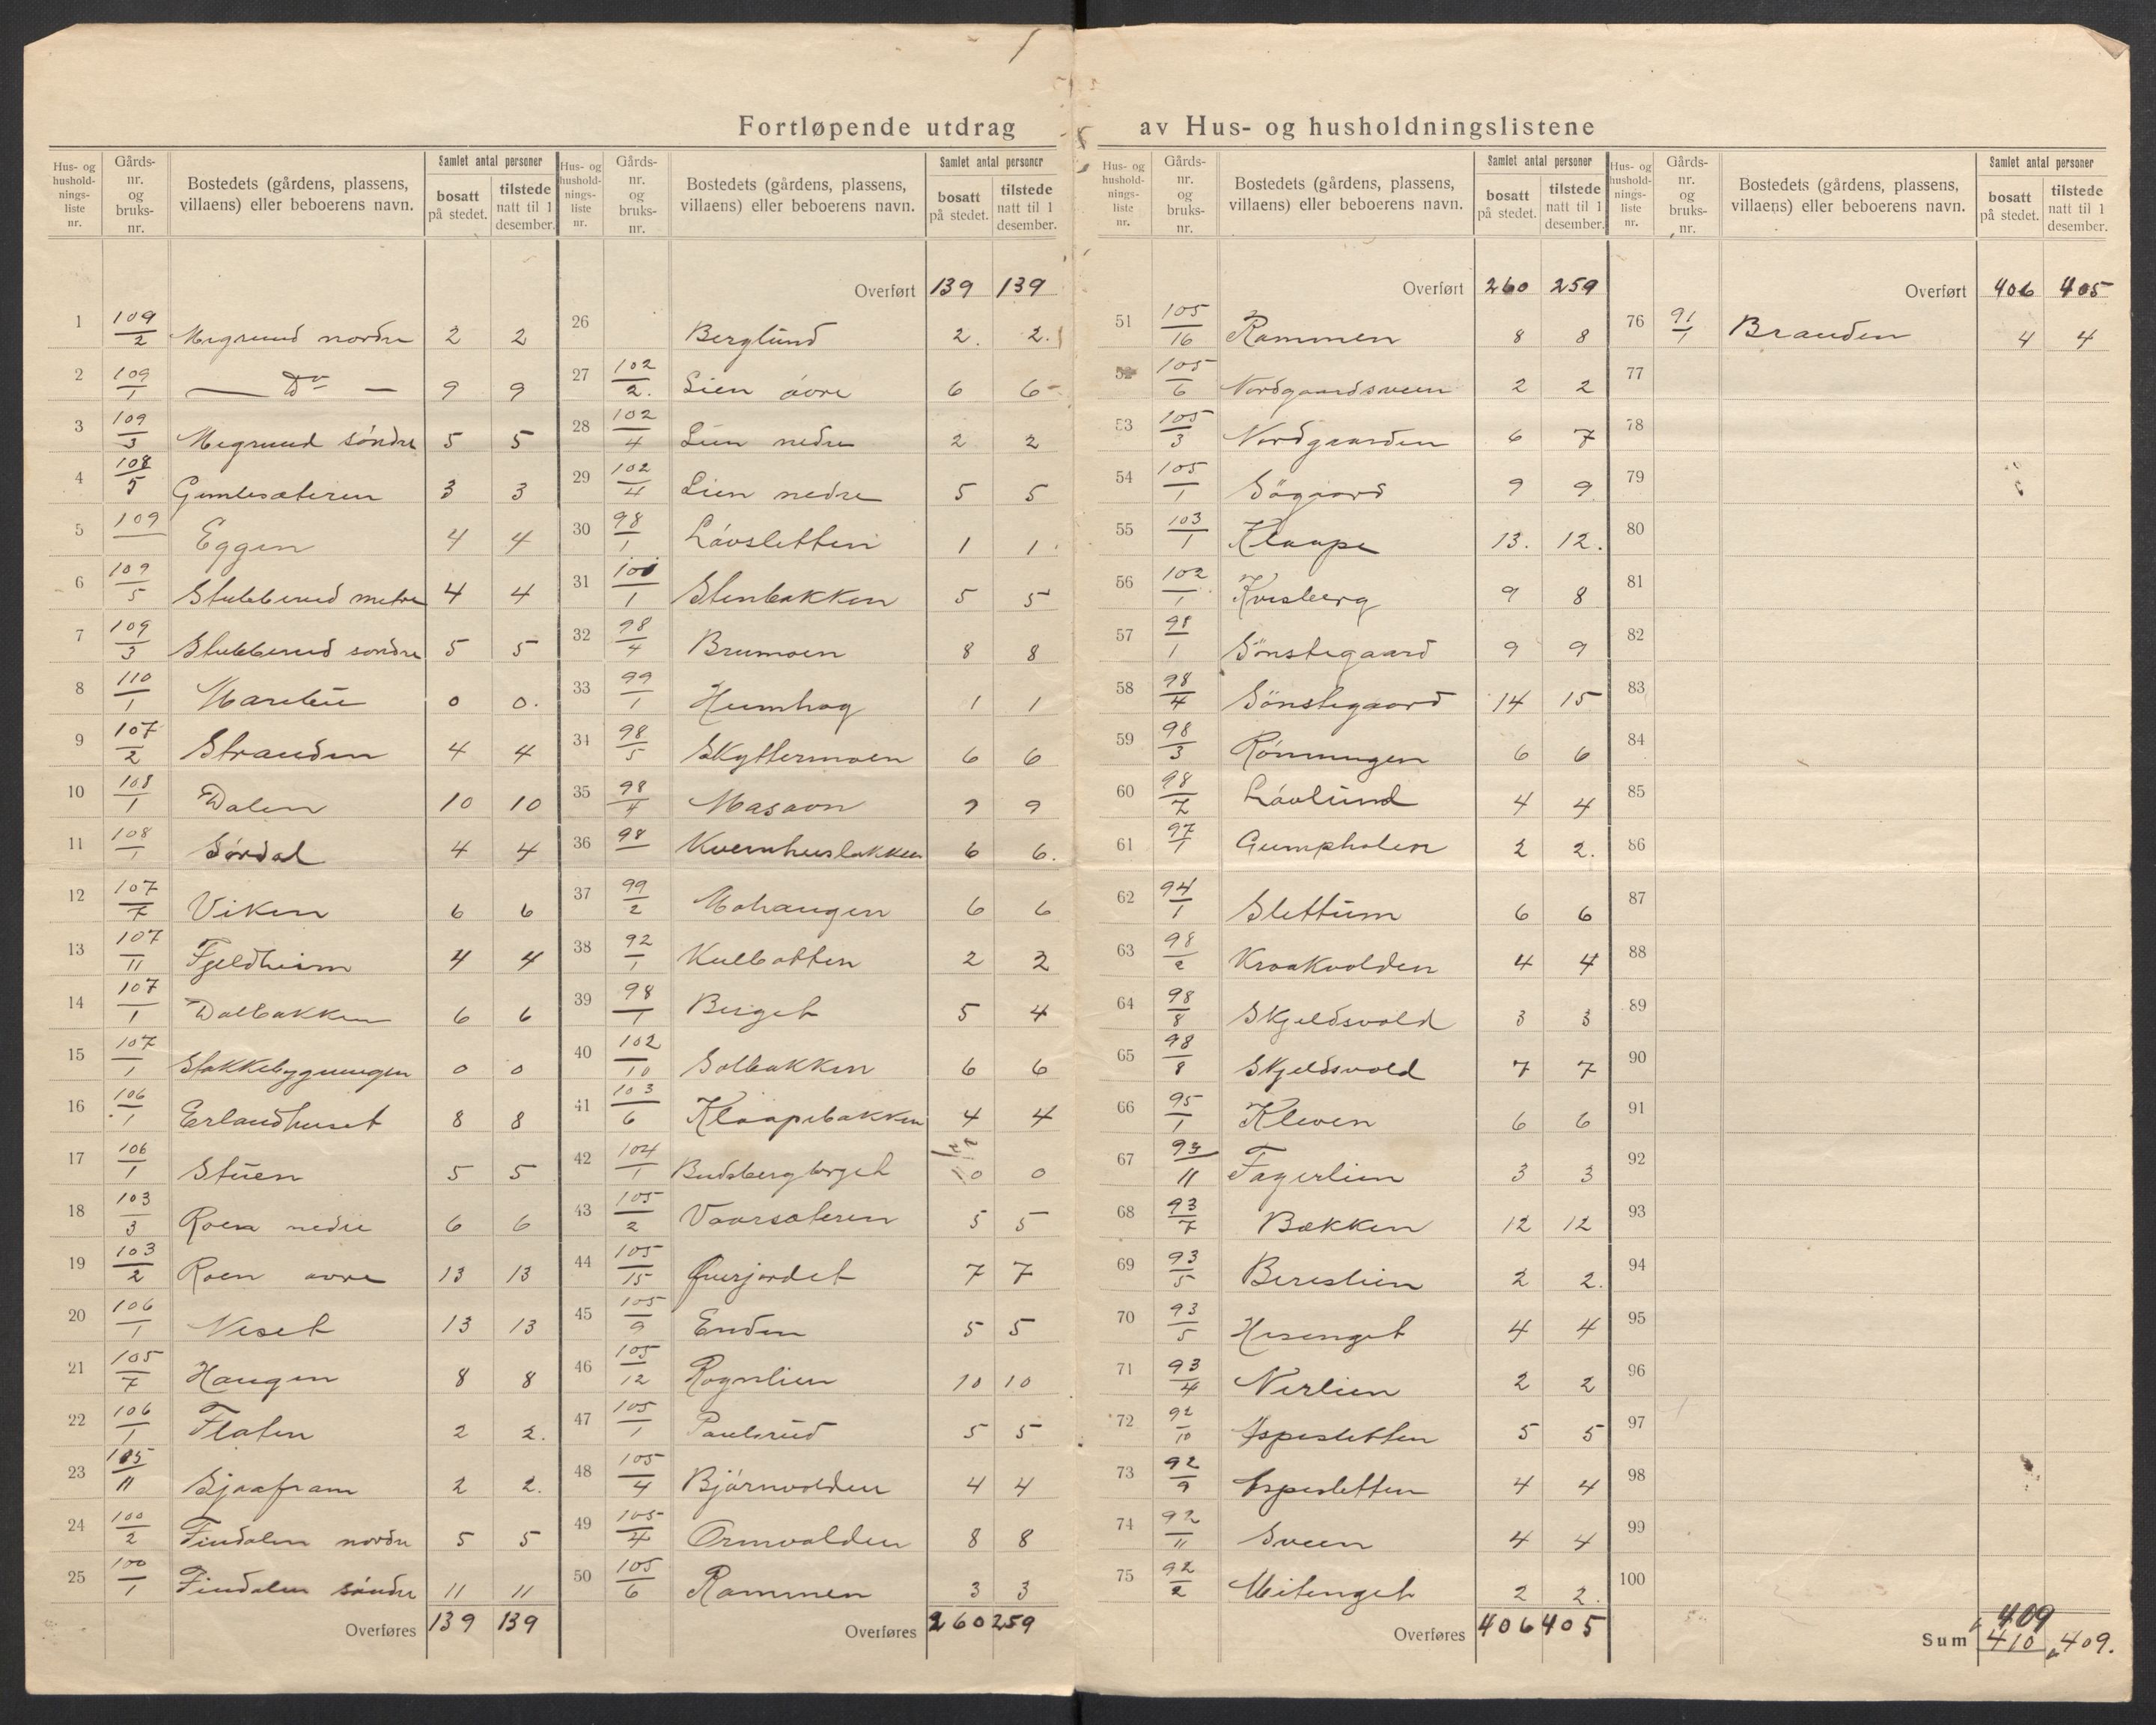 Fortløpende utdrag av Hus- og husholdningslistene
Hus- og husholdnings- liste nr. | Gårds- nr. og bruks- nr. | Bostedets (gårdens, plassens, villaens) eller beboerens navn. | Samlet antal personer | bosatt på stedet. | tilstede natt til 1 desember.
1 109/2 Megrund nordre 2 2
2 109/1 — Do — 9 9
3 109/3 Megrund söndre 5 5
4 108/5 Gamlesæteren 3 3
5 109 Eggen 4 4
6 109/5 Stubberud metre 4 4
7 109/3 Stubberud sondre 5 5
8 110/1 0 0.
9 107/2 Stranden 4 4
10 108/1 Dalen 10 10
11 108/1 Sørdal 4 4
12 107/7 Viken 6 6
13 107/11 Fjeldheim 4 4
14 107/1 Dalbakken 6 6
15 107/1 Stakkebygningen 0 0
16 106/1 Erlandhuset 8 8
17 106/1 Stuen 5 5
18 103/3 Roen nedre 6 6
19 103/2 Roen øvre 13 13
20 106/1 Neset 13 13
21 105/7 Haugen 8 8
22 106/1 Flaten 2 2.
23 105/11 Sjaafram 2 2.
24 100/2 Findalen nordre 5 5
25 100/1 Findalen söndre 11 11
Overføres 139 139
Hus- og husholdnings- liste nr. | Gårds- nr. og bruks- nr. | Bostedets (gårdens, plassens, villaens) eller beboerens navn. | Samlet antal personer | bosatt på stedet. | tilstede natt til 1 desember.
Overført 139 139
26 Berglund 2. 2.
27 102/2. Lien övre 6 6
28 102/4 Lien nedre 2 2
29 102/4 Lien nedre 5 5
30 98/1 Lövsletten 1 1
31 100/1 Stenbakken 5 5
32 98/4 Brumoen 8 8
33 99/1 Humhag 1 1
34 98/5 Skyttermoen 6 6
35 98/4 Masaon 9 9
36 98 Kvernhusbakken 6 6.
37 99/2 Mohaugen 6 6
38 92/1 Kulbotten 2 2
39 98/1 Berget 5 4
40 102/10 Solbakken 6 6
41 103/6 Klaapebakken 4 4
42 104/1 Budsbergberget 0 0
43 105/2 Vaarsæteren 5 5
44 105/15 Øverjordet 7 7
45 105/9 Enden 5 5
46 105/12 Rognlien 10 10
47 105/1 Paulsrud 5 5
48 105/4 Björnvolden 4 4
49 105/4 Ormvolden 8 8
50 105/6 Rammen 3 3
Overføres 260 259
Hus- og husholdnings- liste nr. | Gårds- nr. og bruks- nr. | Bostedets (gårdens, plassens, villaens) eller beboerens navn. | Samlet antal personer | bosatt på stedet. | tilstede natt til 1 desember.
Overført 260 259
51 105/16 Rammen 8 8
52 105/6 Nordgaardsveen 2 2
53 105/3 Nordgaarden 6 7
54 105/1 Sögaard 9 9
55 103/1 Klaape 13. 12.
56 102/1 Kvisberg 9 8
57 98/1 Sönstegaard 9 9
58 98/4 Sönstegaard 14 15
59 98/3 Rönningen 6 6
60 98/7 Lövlund 4 4
61 97/1 Gumpholen 2 2.
62 94/1 Slettum 6 6
63 98/2 Kraakvolden 4 4
64 98/8 Skjeldsvold 3 3
65 98/8 Skjeldsvold 7 7
66 95/1 Kleven 6 6
67 93/11 Fagerlien 3 3
68 93/7 Bækken 12 12
69 93/5 Bereslien 2 2.
70 93/5 Hesenget 4 4
71 93/4 Nerlien 2 2
72 92/10 Espesletten 5 5
73 92/9 Espesletten 4 4
74 92/11 Sveen 4 4
75 92/2 Mitenget 2 2.
Overføres 406 405
Hus- og husholdnings- liste nr. | Gårds- nr. og bruks- nr. | Bostedets (gårdens, plassens, villaens) eller beboerens navn. | Samlet antal personer | bosatt på stedet. | tilstede natt til 1 desember.
Overført 406 405
76 91/1 Branden 4 4
77
78
79
80
81
82
83
84
85
86
87
88
89
90
91
92
93
94
95
96
97
98
99
100
409
Sum 410 409.